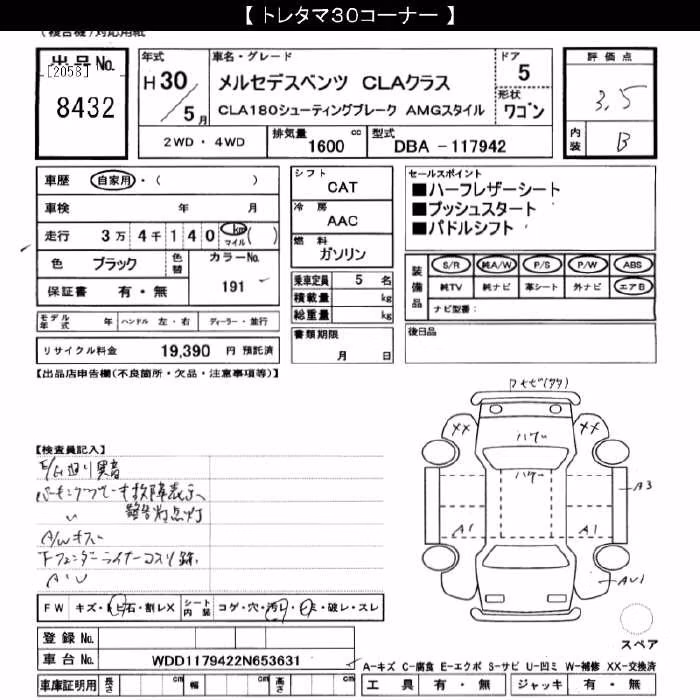 【 トレタマ30コーナー 】
(複合機)対応用紙
出品 No.
[2058]
8432
年式
H 30
5 月
車名・グレード
メルセデスベンツ CLAクラス
CLA180シューティングブレーク AMGスタイル
ドア
5
形状
ワゴン
評価点
3.5
内装
B
2WD・4WD
排気量
1600 cc
型式
DBA -117942
車歴
自家用・( )
車検 年 月
走行 3万 4千 1 4 0 km マイル ( )
色 ブラック
色替
カラーNo.
191
保証書 有・無
モデル年式 年
ハンドル 左・右
ディーラー・並行
リサイクル料金 19,390 円 預託済
シフト
CAT
冷房
AAC
燃料
ガソリン
乗車定員 5 名
積載量 kg
総重量 kg
書類期限
月 日
セールスポイント
■ハーフレザーシート
■プッシュスタート
■パドルシフト
装備品
S/R 純A/W P/S P/W ABS
純TV 純ナビ 革シート 外ナビ エアB
ナビ型番:
後日品
【出品店申告欄(不良箇所・欠品・注意事項等)】
【検査員記入】
E/G廻り異音
パーキングブレーキ故障表示、
〃 警告灯点灯
A/Wキズ
下フェンダーライナーコスリ跡、
XX
XX
A3
A1
A1
AU1
FW キズ・飛石・割レX
シート内装 コゲ・穴・汚レ・シミ・破レ・スレ
スペア
登録 No.
車台 No. WDD1179422N653631
車庫証明用 長さ cm 幅 cm 高さ cm
A-キズ C-腐食 E-エクボ S-サビ U-凹ミ W-補修 XX-交換済
工具 有・無 ジャッキ 有・無